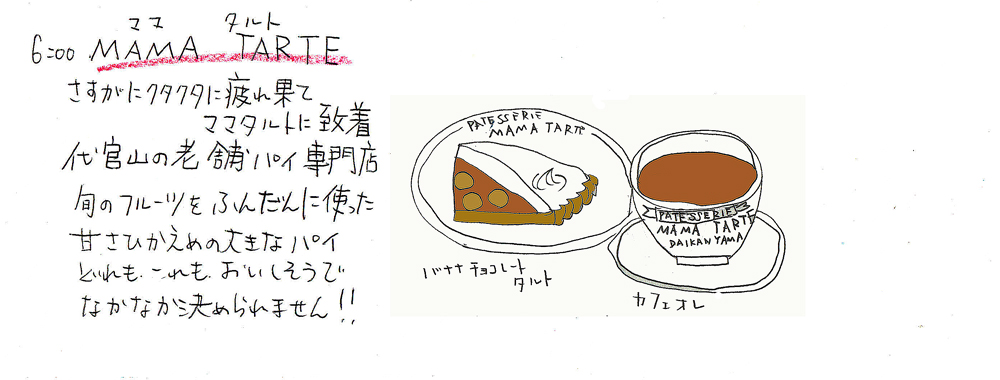 ママ タルト
6:00 MAMA TARTE
さすがにクタクタに疲れ果て
ママタルトに致着
代官山の老舗パイ専門店
旬のフルーツをふんだんに使った
甘さひかえめの大きなパイ
どれも これも おいしそうで
なかなか決められません!!
PATESSERIE
MAMA TARTE
バナナチョコレート
タルト
PATESSERIE
MAMA TARTE
DAIKANYAMA
カフェオレ